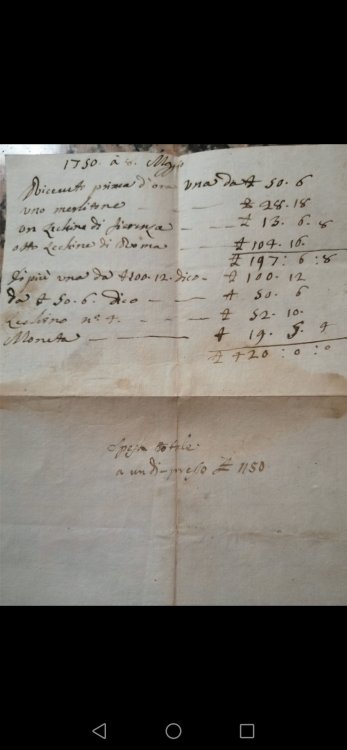 1750. à 8. Magg
Riceuuti prima d'ora una da ₤ 50. 6
uno merlitone ₤ 28. 18
un Zechine di fiorenza ₤ 13. 6. 8
otto Zechine di Roma ₤ 104. 16.
₤ 197: 6: 8
Di più una da ₤ 100. 12. dico ₤ 100. 12
da ₤ 50. 6. dico ₤ 50. 6
Zechino nº 4. ₤ 52. 10.
Moneta ₤ 19. 5. 4
₤ 420: 0: 0
Spesa totale.
a un di-preso ₤ 1150